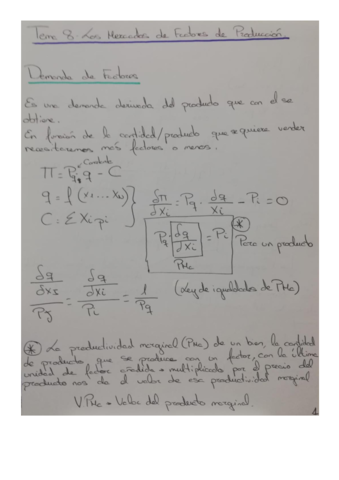 Tema 8. Los Mercados de Factores de Producción
Demanda de Factores
Es una demanda derivada del producto que con el se
obtiene.
En función de la cantidad/producto que se quiera vender
necesitaremos más factores o menos.
Constante
Π = Pq · q - C
q = f (x1 ... xN)
C = Σ xi · pi
δΠ/δxi = Pq · δq/xi - Pi = 0
Pq · δq/δxi = Pi
PMg
*
Para un producto
δq/δxj / Pj = δq/δxi / Pi = 1/Pq (Ley de igualdades de PMg)
* La productividad marginal (PMg) de un bien, la cantidad
de producto que se produce con un factor, con la última
unidad de factor añadida multiplicado por el precio del
producto nos da el valor de esa productividad marginal
VPMg = Valor del producto marginal.